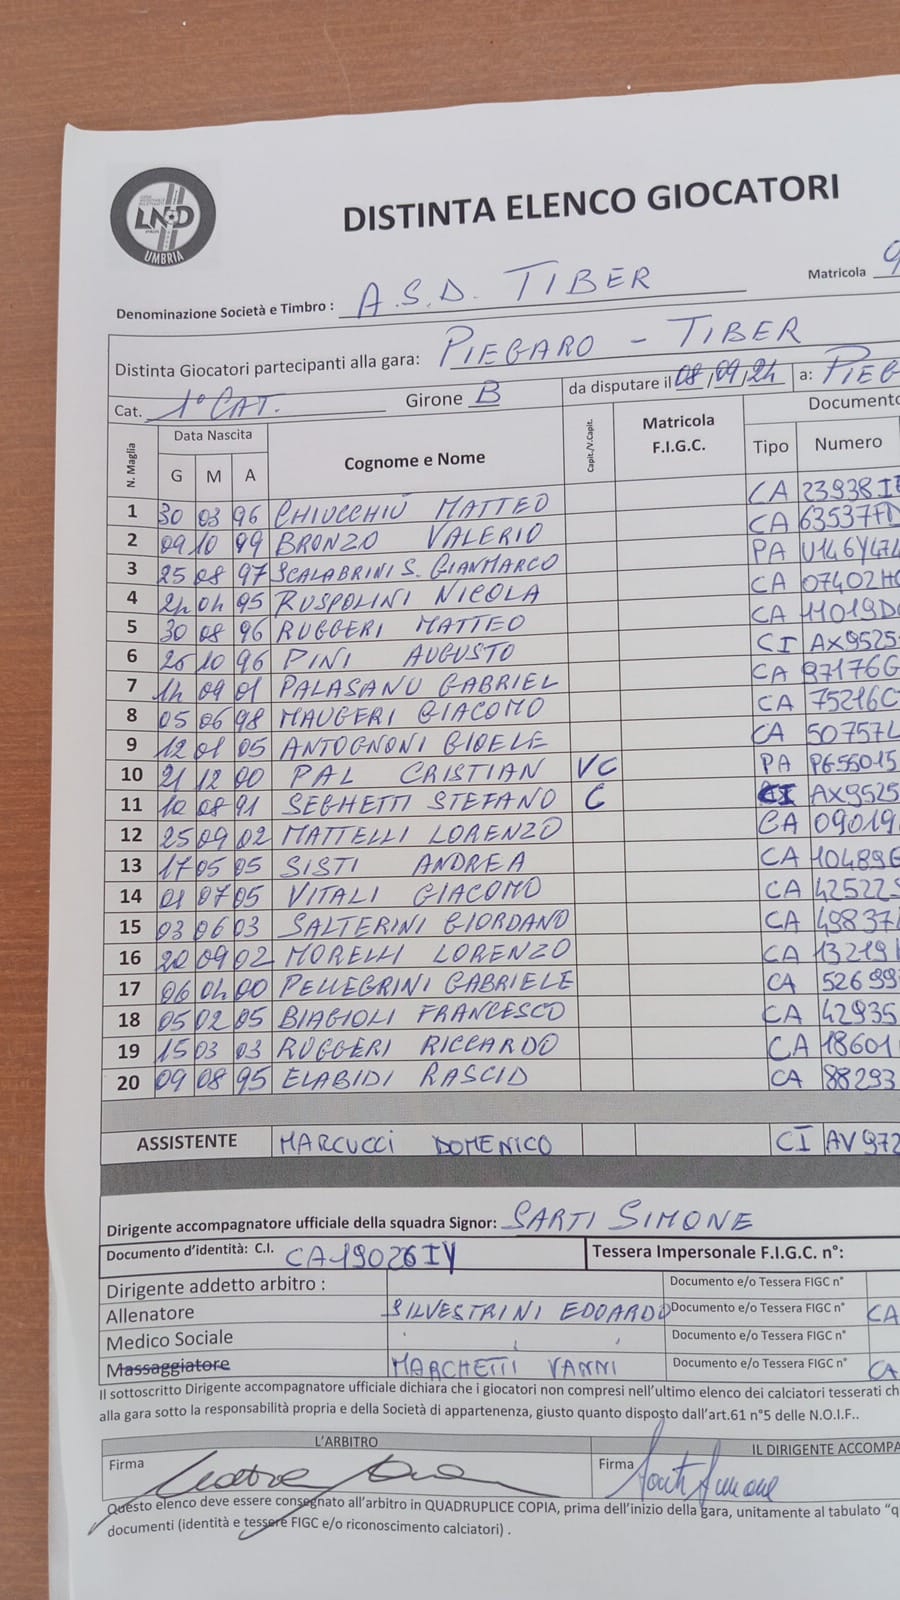 LND
UMBRIA
DISTINTA ELENCO GIOCATORI
Denominazione Società e Timbro : A.S.D. TIBER Matricola
Distinta Giocatori partecipanti alla gara: PIEGARO - TIBER
Cat. 1° CAT. Girone B da disputare il 08/09/24 a: PIEG
N. Maglia Data Nascita Cognome e Nome Capit./V.Capit. Matricola F.I.G.C. Documento
G M A Tipo Numero
1 30 03 96 CHIUCCHIÙ MATTEO CA 23938IE
2 09 10 99 BRONZO VALERIO CA 63537FD
3 25 08 97 SCALABRINI S. GIANMARCO PA U146Y474
4 24 04 95 RUSPOLINI NICOLA CA 07402HC
5 30 08 96 RUGGERI MATTEO CA 11019D
6 26 10 96 PINI AUGUSTO CI AX9525
7 14 09 01 PALASANU GABRIEL CA 97176G
8 05 06 98 MAUGERI GIACOMO CA 75216C
9 12 01 05 ANTOGNONI GIOELE CA 50757L
10 21 12 00 PAL CRISTIAN VC PA PG55015
11 10 08 91 SEGHETTI STEFANO C CI AX9525
12 25 09 02 MATTELLI LORENZO CA 09019
13 17 05 05 SISTI ANDREA CA 10489G
14 01 07 05 VITALI GIACOMO CA 42522S
15 03 06 03 SALTERINI GIORDANO CA 49837
16 20 09 02 MORELLI LORENZO CA 13219
17 06 04 00 PELLEGRINI GABRIELE CA 52699
18 05 02 05 BIAGIOLI FRANCESCO CA 42935
19 15 03 03 RUGGERI RICCARDO CA 18601
20 09 08 95 ELABIDI RASCID CA 88293
ASSISTENTE MARCUCCI DOMENICO CI AV972
Dirigente accompagnatore ufficiale della squadra Signor: SARTI SIMONE
Documento d'identità: C.I. CA19026IY Tessera Impersonale F.I.G.C. n°:
Dirigente addetto arbitro : Documento e/o Tessera FIGC n°
Allenatore SILVESTRINI EDOARDO Documento e/o Tessera FIGC n° CA
Medico Sociale Documento e/o Tessera FIGC n°
Massaggiatore MARCHETTI VANNI Documento e/o Tessera FIGC n° CA
Il sottoscritto Dirigente accompagnatore ufficiale dichiara che i giocatori non compresi nell'ultimo elenco dei calciatori tesserati ch
alla gara sotto la responsabilità propria e della Società di appartenenza, giusto quanto disposto dall'art.61 n°5 delle N.O.I.F..
L'ARBITRO IL DIRIGENTE ACCOMPA
Firma Firma Sarti Simone
Questo elenco deve essere consegnato all'arbitro in QUADRUPLICE COPIA, prima dell'inizio della gara, unitamente al tabulato "q
documenti (identità e tessere FIGC e/o riconoscimento calciatori) .